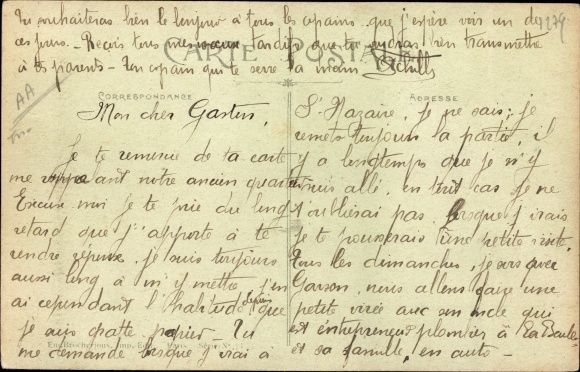 Tu souhaiteras bien le bonjour à tous les copains que j'espère voir un de
ces jours. - Reçois tous mes vœux tardifs que tu voudras bien transmettre
à tes parents - Un copain qui te serre la main -
CARTE POSTALE
AA
CORRESPONDANCE
Mon cher Gaston,
Je te remercie de ta carte
me rappelant notre ancien quartier
Excuse moi je te prie du long
retard que j'apporte à te
rendre réponse. Je suis toujours
aussi long à m'y mettre, j'en
ai cependant l'habitude depuis que
je suis gratte-papier - Tu
me demande lorsque j'irai à
ADRESSE
St Nazaire, je ne sais; je
remets toujours la partie, il
y a longtemps que je n'y
suis allé, en tout cas je ne
t'oublierai pas, lorsque j'irais
je te pousserais une petite visite.
Tous les dimanches, je vais avec
Garson, nous allons faire une
petite virée avec son oncle qui
est entrepreneur plombier à La Baule
et sa famille, en auto -